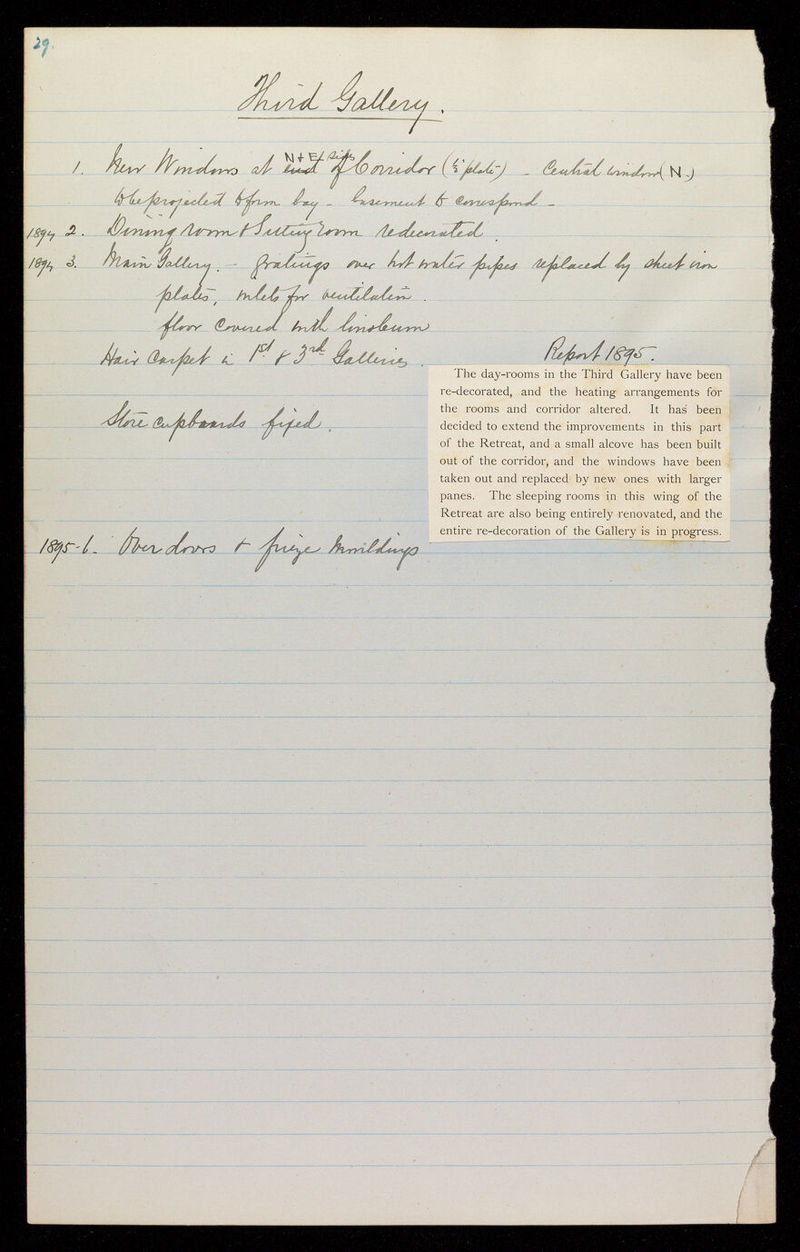 29.
Third Gallery.
1. New Windows at N + E sides end of Corridor (¼" plate) - Central window (N.)
to be projected to form bay - basement to correspond -
1894 2. Dining room & Sitting room redecorated.
1894 3. Main Gallery. - gratings over hot water pipes replaced by sheet iron
plates, inlets for ventilation.
floor covered with linoleum
Hair Carpet in 1st. & 3rd Galleries.
Report 1895.
The day-rooms in the Third Gallery have been
re-decorated, and the heating arrangements for
the rooms and corridor altered. It has been
decided to extend the improvements in this part
of the Retreat, and a small alcove has been built
out of the corridor, and the windows have been
taken out and replaced by new ones with larger
panes. The sleeping rooms in this wing of the
Retreat are also being entirely renovated, and the
entire re-decoration of the Gallery is in progress.
Store cupboards fixed.
1895-6. Over doors & frieze mouldings